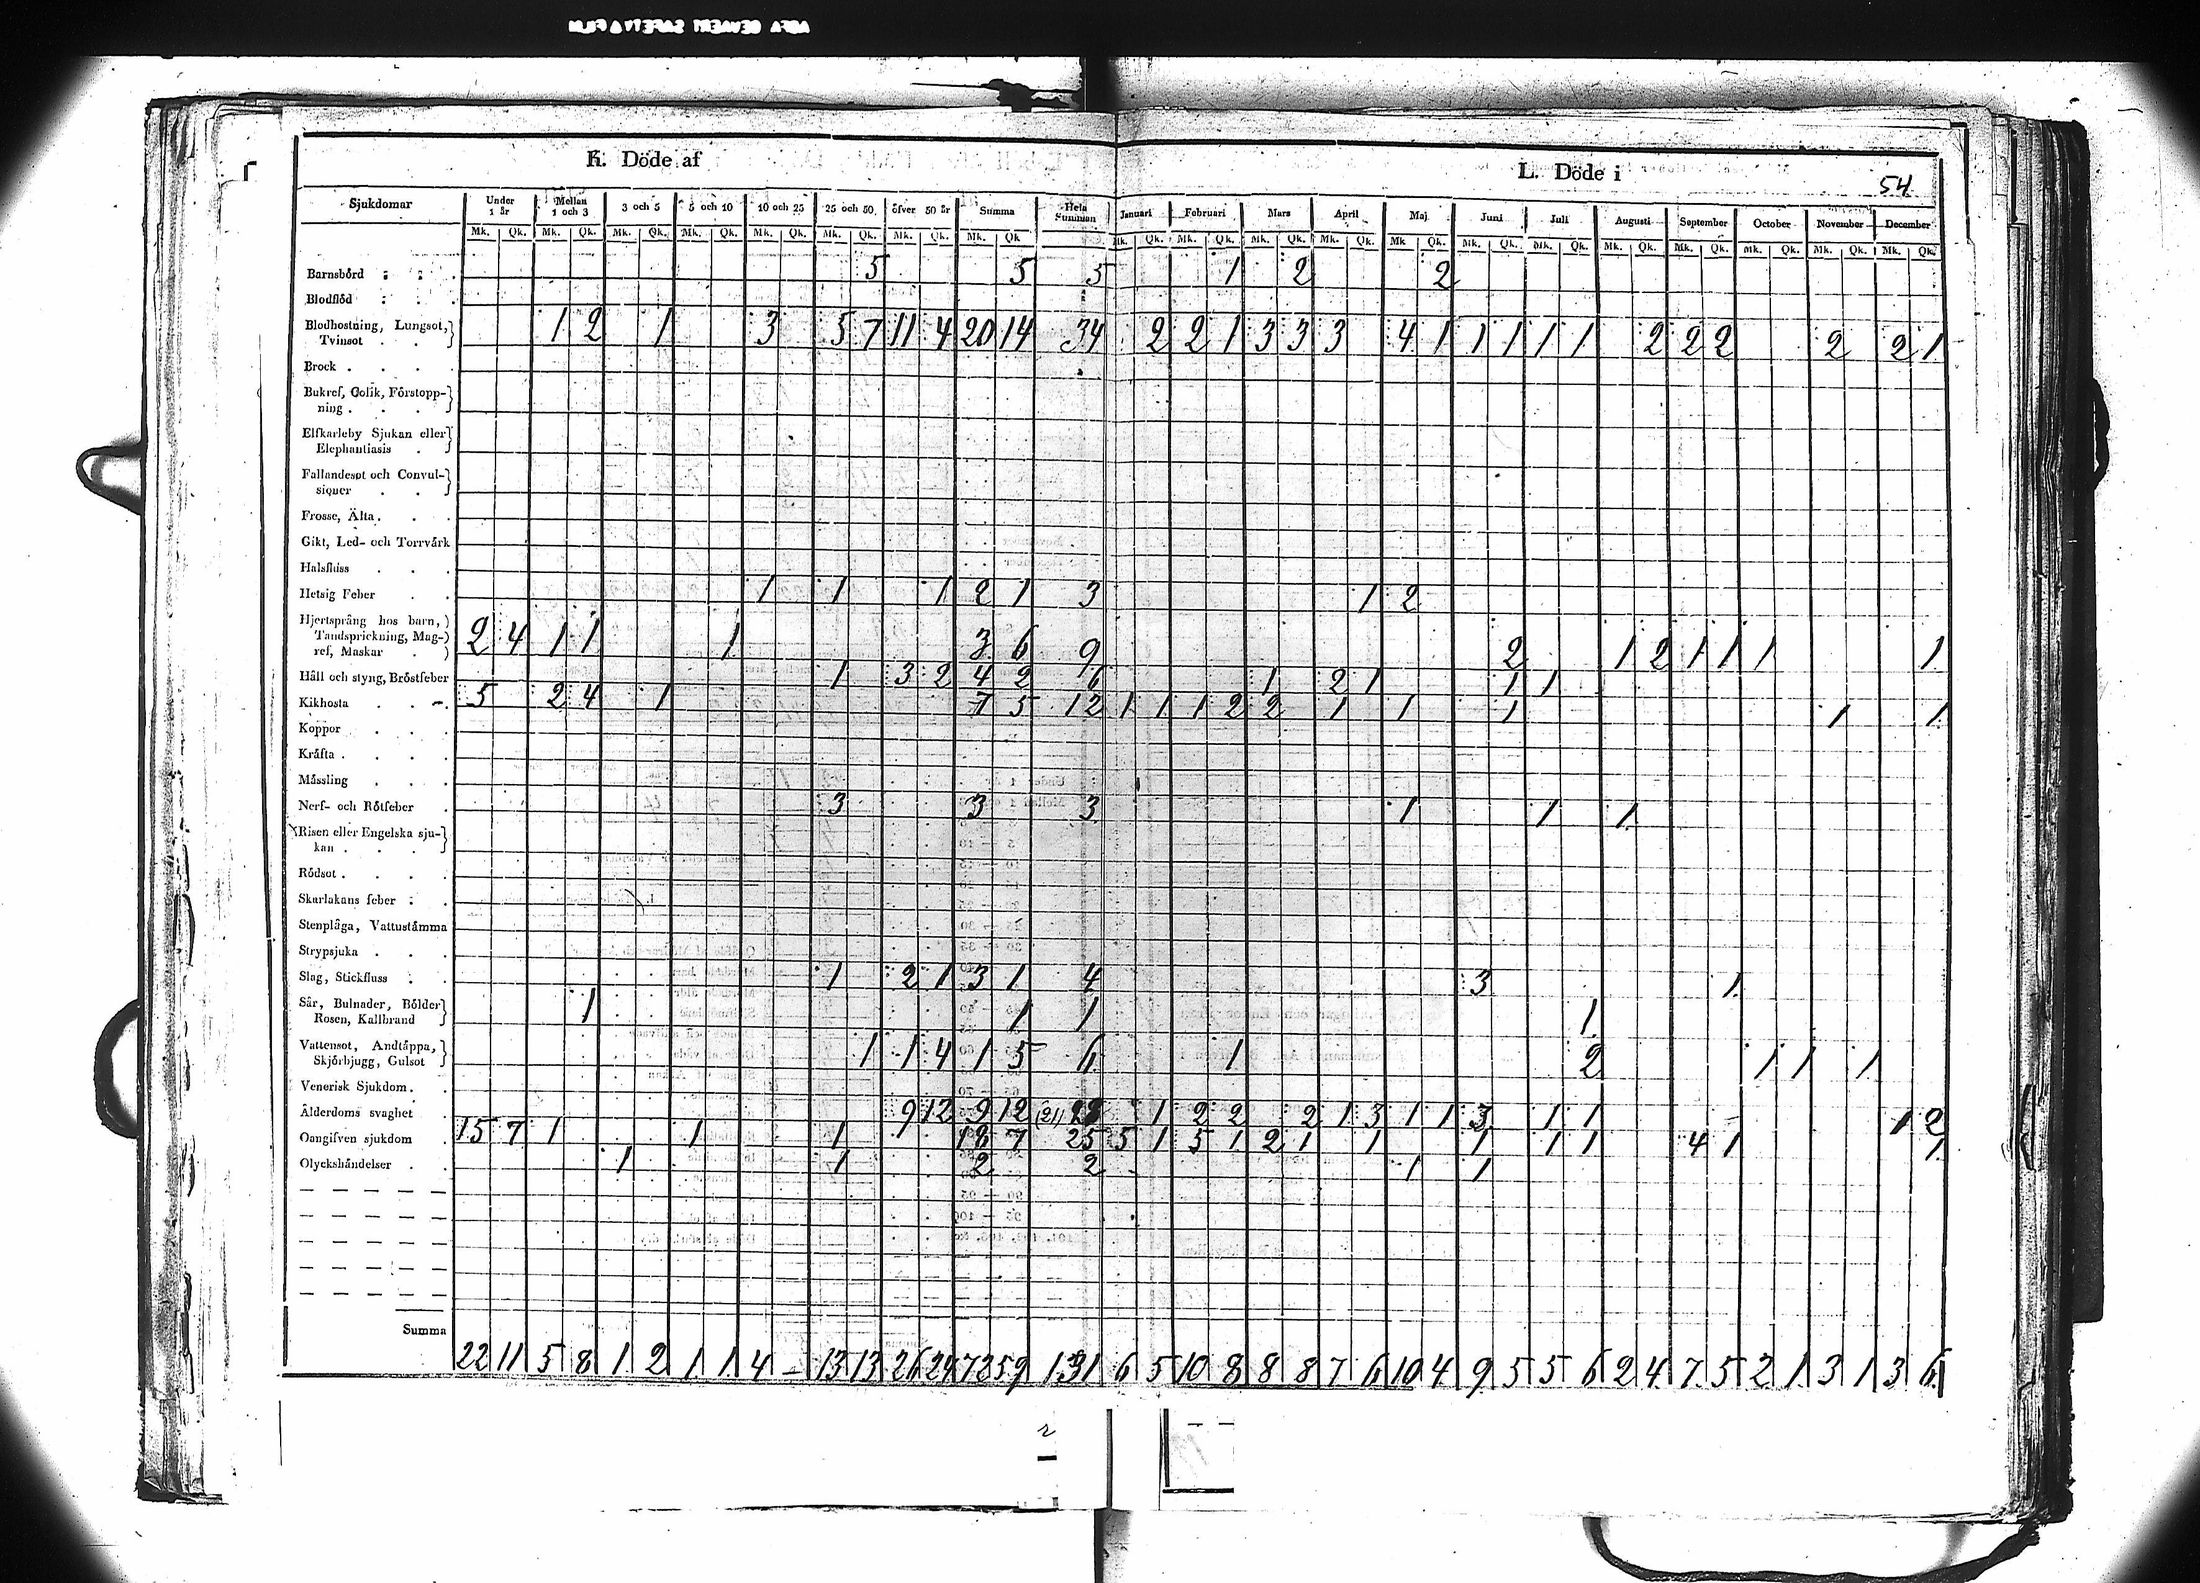 K. Döde af
L. Döde i
54
Sjukdomar Under 1 år Mellan 1 och 3 3 och 5 5 och 10 10 och 25 25 och 50 öfver 50 år Summa Hela Summan Januari Februari Mars April Maj Juni Juli Augusti September October November December
Mk. Qk. Mk. Qk. Mk. Qk. Mk. Qk. Mk. Qk. Mk. Qk. Mk. Qk. Mk. Qk Mk. Qk. Mk. Qk. Mk. Qk. Mk. Qk. Mk Qk. Mk. Qk. Mk. Qk. Mk. Qk. Mk. Qk. Mk. Qk. Mk. Qk. Mk. Qk.
Barnsbörd 5 5 5 1 2 2
Blodflöd
Blodhostning, Lungsot, Tvinsot 1 2 1 3 5 7 11 4 20 14 34 2 2 1 3 3 3 4 1 1 1 1 1 2 2 2 2 2 1
Brock
Bukref, Colik, Förstoppning
Elfkarleby Sjukan eller Elephantiasis
Fallandesot och Convulsioner
Frossa, Älta
Gikt, Led- och Torrvärk
Halsfluss
Hetsig Feber 1 1 1 2 1 3 1 2
Hjertsprång hos barn, Tandsprickning, Magref, Maskar 2 4 1 1 1 3 6 9 2 1 2 1 1 1 1
Håll och styng, Bröstfeber 1 3 2 4 2 6 1 2 1 1 1
Kikhosta 5 2 4 1 7 5 12 1 1 1 2 2 1 1 1 1 1
Koppor
Kräfta
Mässling
Nerf- och Rötfeber 3 3 3 1 1 1
Risen eller Engelska sjukan
Rödsot
Skarlakans feber
Stenplåga, Vattustämma
Strypsjuka
Slag, Stickfluss 1 2 1 3 1 4 3 1
Sår, Bulnader, Bölder Rosen, Kallbrand 1 1 1 1
Vattensot, Andtäppa, Skjörbjugg, Gulsot 1 1 4 1 5 6 1 2 1 1 1
Venerisk Sjukdom
Ålderdoms svaghet 9 12 9 12 (21) 1 2 2 2 1 3 1 1 3 1 1 1 2
Oangifven sjukdom 15 7 1 1 1 18 7 25 5 1 5 1 2 1 1 1 1 1 4 1 1
Olyckshändelser 1 1 2 2 1 1
Summa 22 11 5 8 1 2 1 1 4 – 13 13 26 24 72 59 131 6 5 10 8 8 8 7 6 10 4 9 5 5 6 2 4 7 5 2 1 3 1 3 6